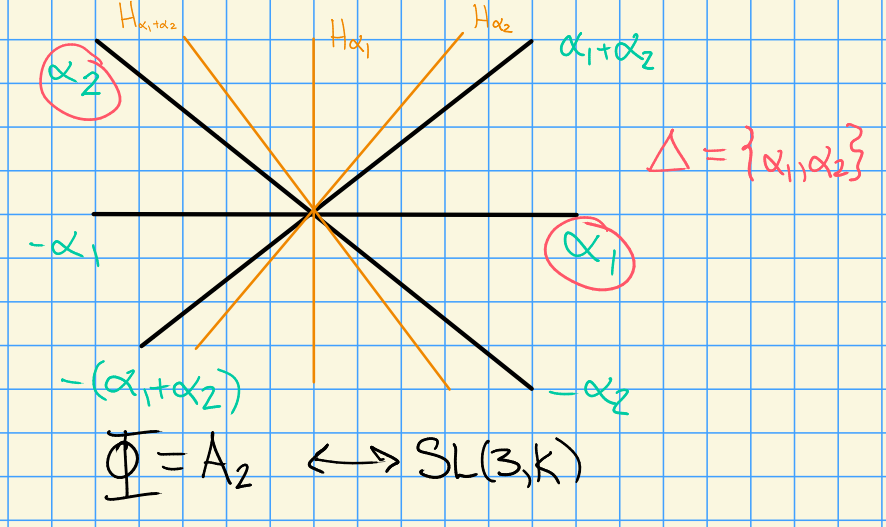 H_{α₁+α₂}
H_{α₁}
H_{α₂}
α₂
α₁+α₂
Δ = {α₁, α₂}
-α₁
α₁
-(α₁+α₂)
-α₂
Φ = A₂ ↔ SL(3,K)